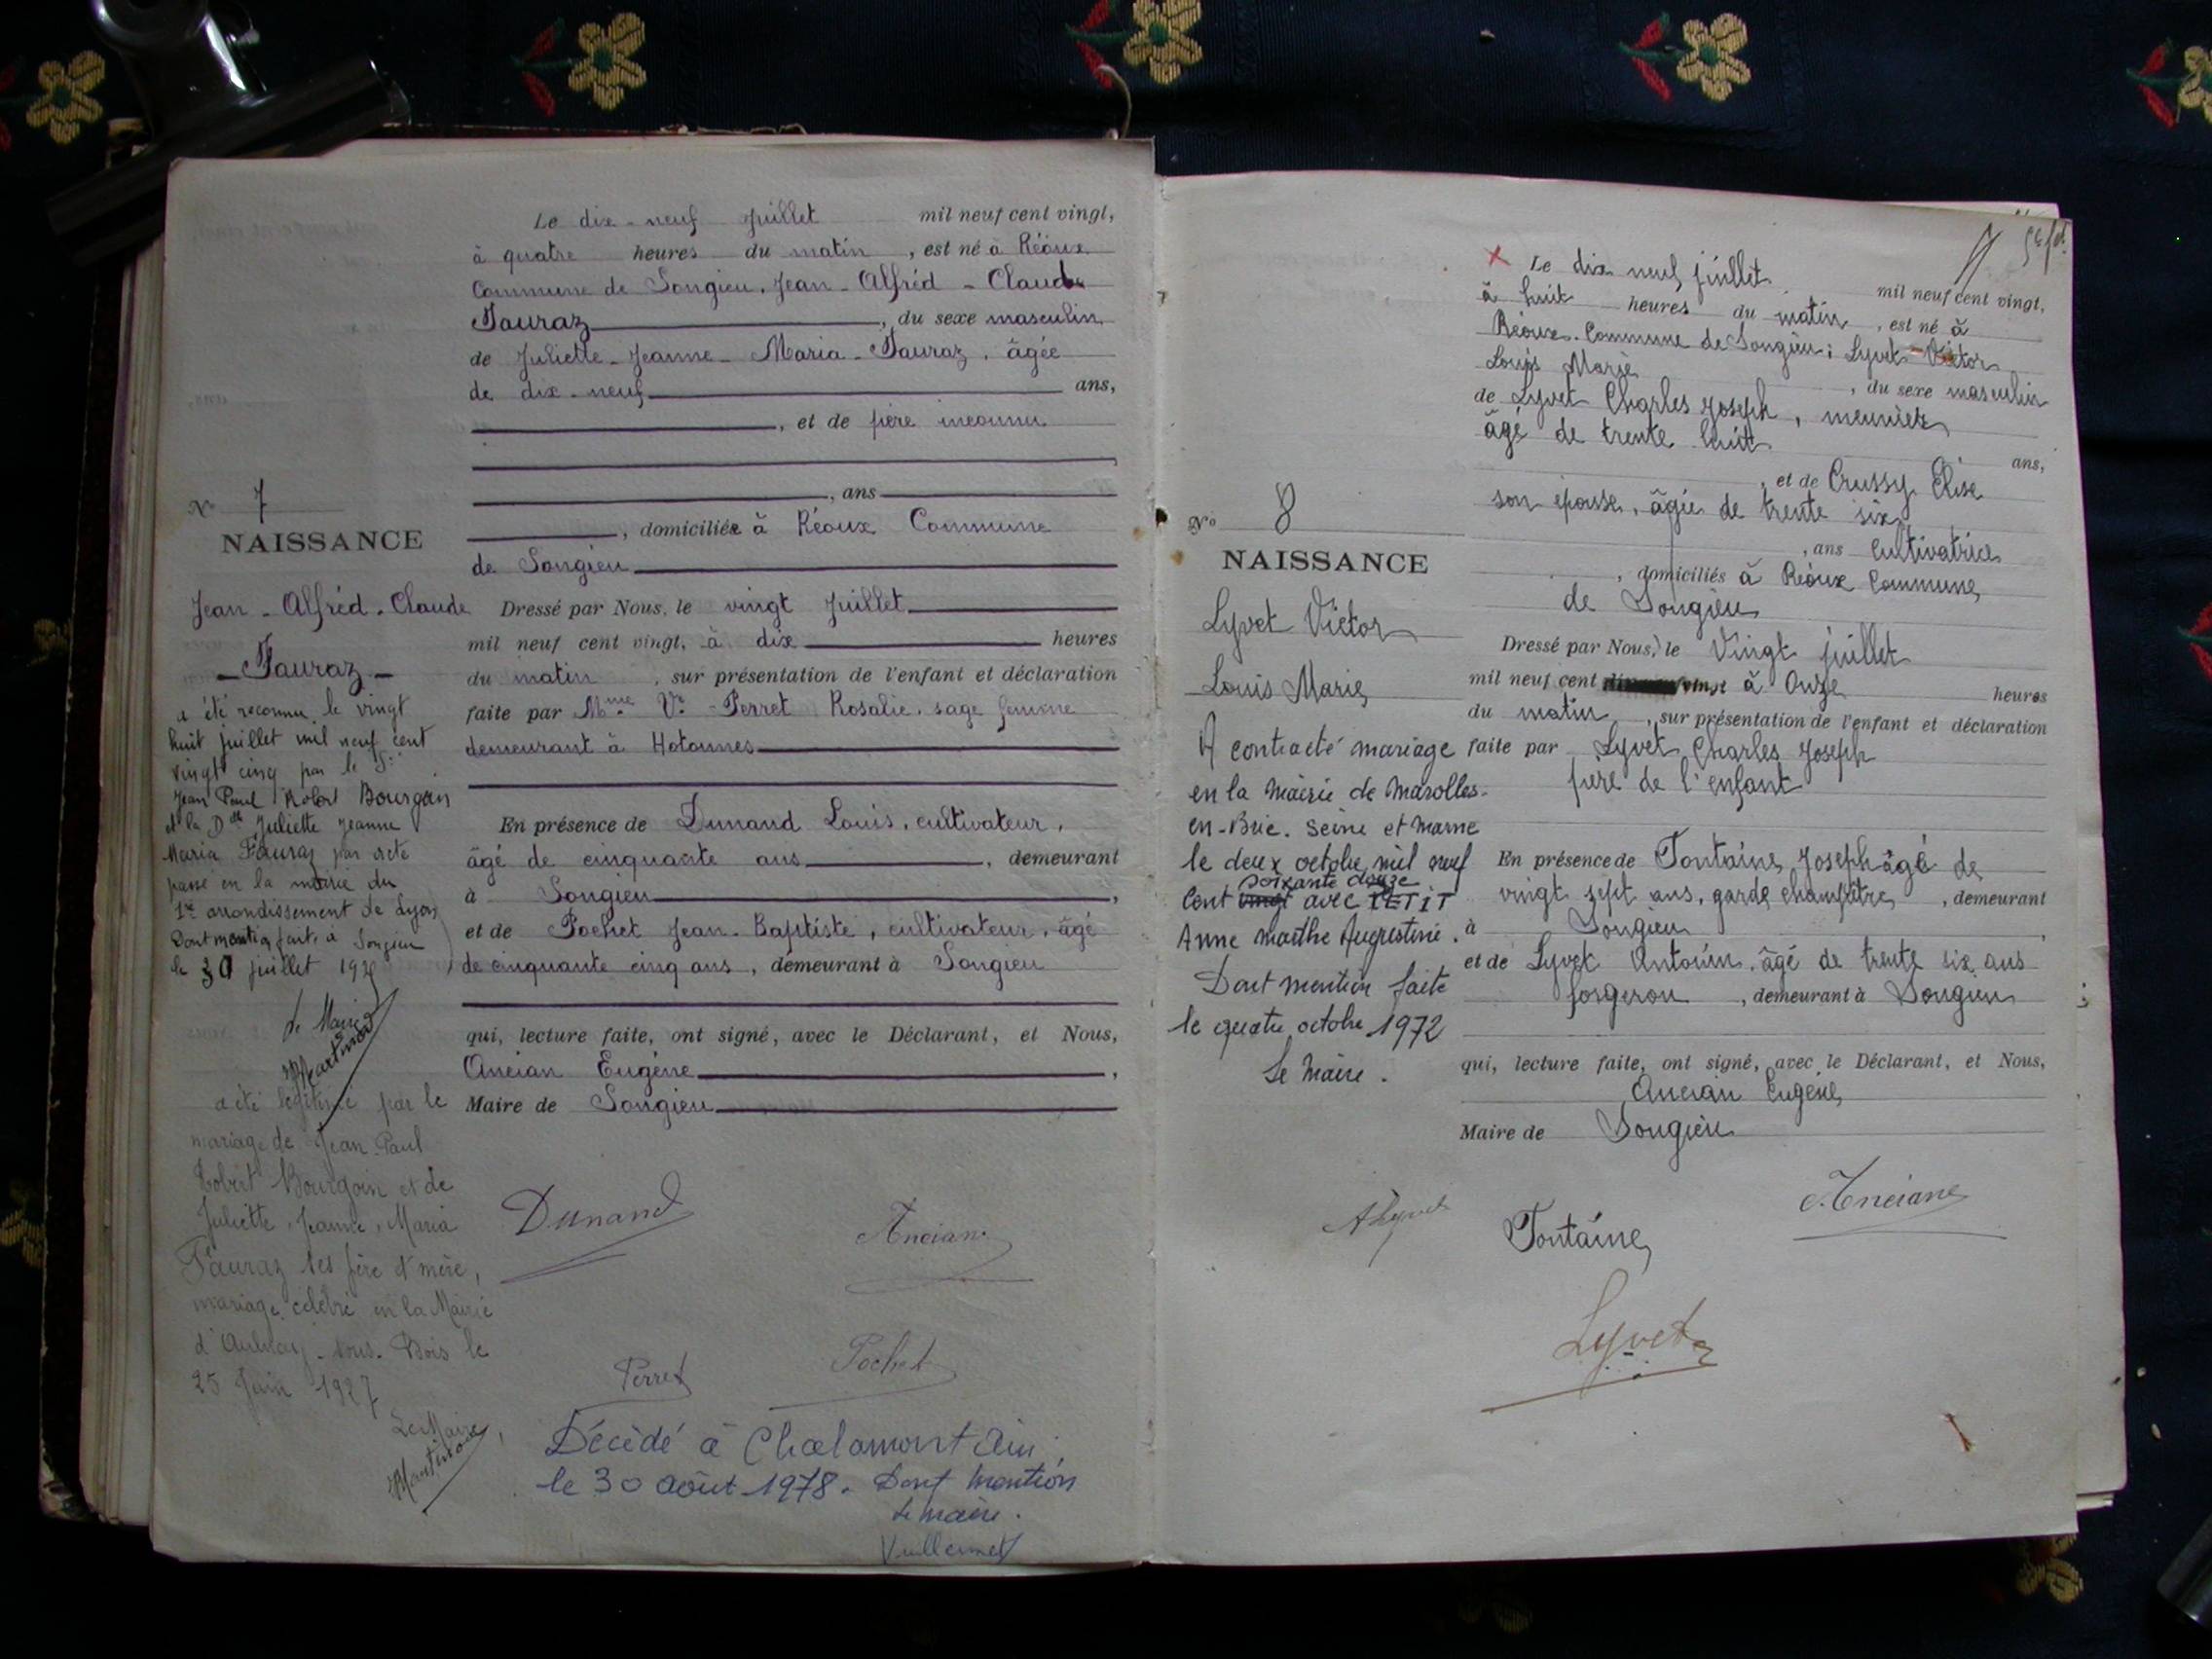 Le dix-neuf Juillet mil neuf cent vingt,
à quatre heures du matin, est né à Réoux
Commune de Songieu, Jean-Alfréd-Claude
Fauraz, du sexe masculin
de Juliette-Jeanne-Maria-Fauraz, âgée
de dix-neuf ans,
, et de père inconnu
, ans
, domiciliée à Réoux Commune
de Songieu
Dressé par Nous, le vingt Juillet
mil neuf cent vingt, à dix heures
du matin, sur présentation de l'enfant et déclaration
faite par Mme Ve Perret Rosalie, sage femme
demeurant à Hotonnes
En présence de Dunand Louis, cultivateur,
âgé de cinquante ans, demeurant
à Songieu,
et de Pochet Jean-Baptiste, cultivateur, âgé
de cinquante cinq ans, demeurant à Songieu
qui, lecture faite, ont signé, avec le Déclarant, et Nous,
Ancian Eugène,
Maire de Songieu
Dunand Anciane
Perret Pochet
Décédé à Chalamont Ain,
le 30 août 1978. Dont mention
Le maire.
Vuillermet
No 7
NAISSANCE
Jean-Alfréd-Claude
-Fauraz-
a été reconnu le vingt
huit juillet mil neuf cent
vingt cinq par le Sr
Jean Paul Robert Bourgoin
et la Dlle Juliette Jeanne
Maria Fauraz par acte
passé en la mairie du
1er arrondissement de Lyon
Dont mention faite à Songieu
le juillet
Le Maire
Martinod
a été légitimé par le
mariage de Jean Paul
Robert Bourgoin et de
Juliette, Jeanne, Maria
Fauraz ses père et mère,
mariage célébré en la Mairie
d'Aulnay-sous-Bois le
25 Juin 1927
Le Maire,
Martinod
Le dix neuf juillet mil neuf cent vingt,
à huit heures du matin, est né à
Réoux. Commune de Songieu; Lyvet Victor
Louis Marie, du sexe masculin
de Lyvet Charles Joseph, meunier
âgé de trente huit ans,
, et de Crussy Élise
son épouse, âgée de trente six
, ans Cultivatrice
, domiciliés à Réoux Commune
de Songieu
Dressé par Nous, le Vingt juillet
mil neuf cent vingt à Onze heures
du matin, sur présentation de l'enfant et déclaration
faite par Lyvet Charles Joseph
père de l'enfant
En présence de Fontaine Joseph âgé de
vingt sept ans, garde champêtre, demeurant
à Songieu,
et de Lyvet Antonin, âgé de trente six ans
forgeron, demeurant à Songieu
qui, lecture faite, ont signé, avec le Déclarant, et Nous,
Ancian Eugène
Maire de Songieu
A Lyvet Fontaine Anciane
Lyvet
No 8
NAISSANCE
Lyvet Victor
Louis Marie
A contracté mariage
en la Mairie de Marolles-
en-Brie. Seine et Marne
le deux octobre mil neuf
soixante douze
Cent vingt avec PETIT
Anne Marthe Augustine.
Dont mention faite
le quatre octobre 1972
Le Maire.